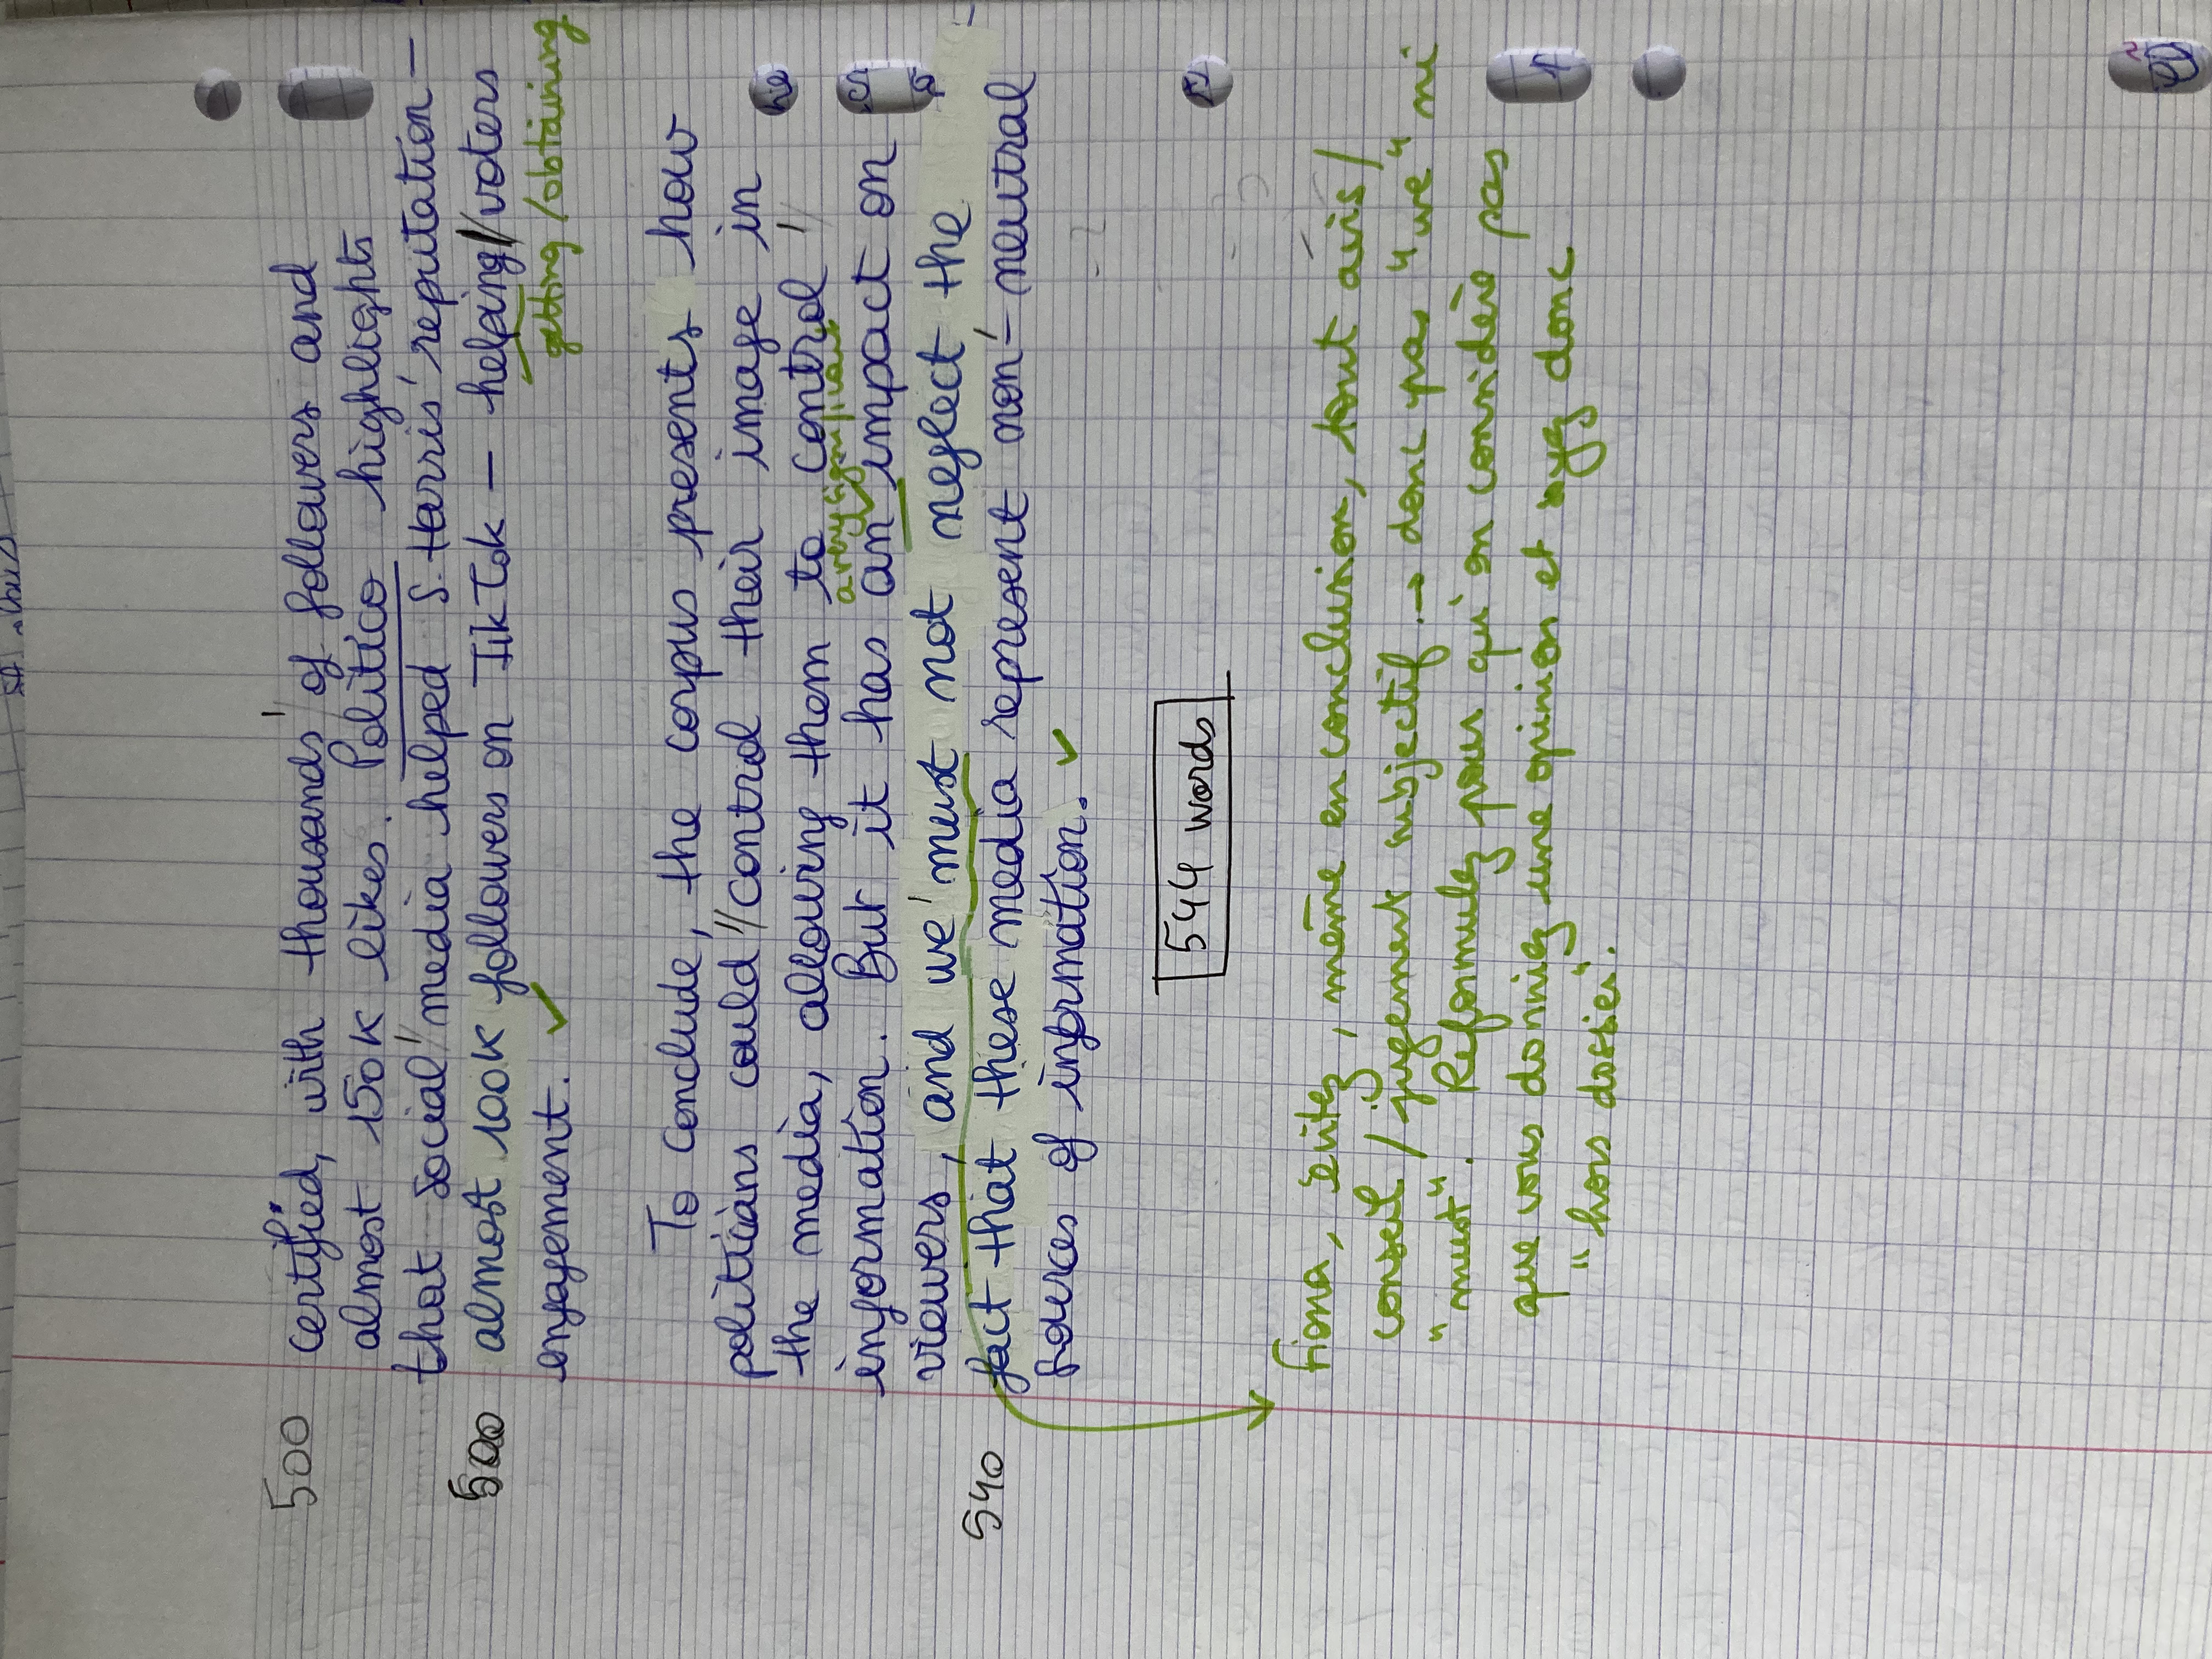 500 certified, with thousands' of followers and
almost 150K likes. Politico highlights
that social // media helped S. Harris' reputation –
500 almost 100K followers on TikTok – helping // voters
getting / obtaining
engagement. ✓
To conclude, the corpus presents how
politicians could // control their image in
the media, allowing them to control //
information. But it has an impact on
a very significant
viewers, and we' must not neglect the
540 fact that these media represent non-'neutral
sources of information. ✓
544 words
Fiona, évitez, même en conclusion, tout avis /
conseil / jugement subjectif. → donc pas "we" ni
"must". Reformulez pour qu'on considère pas
que vous donniez une opinion et soyez donc
"hors dossier".